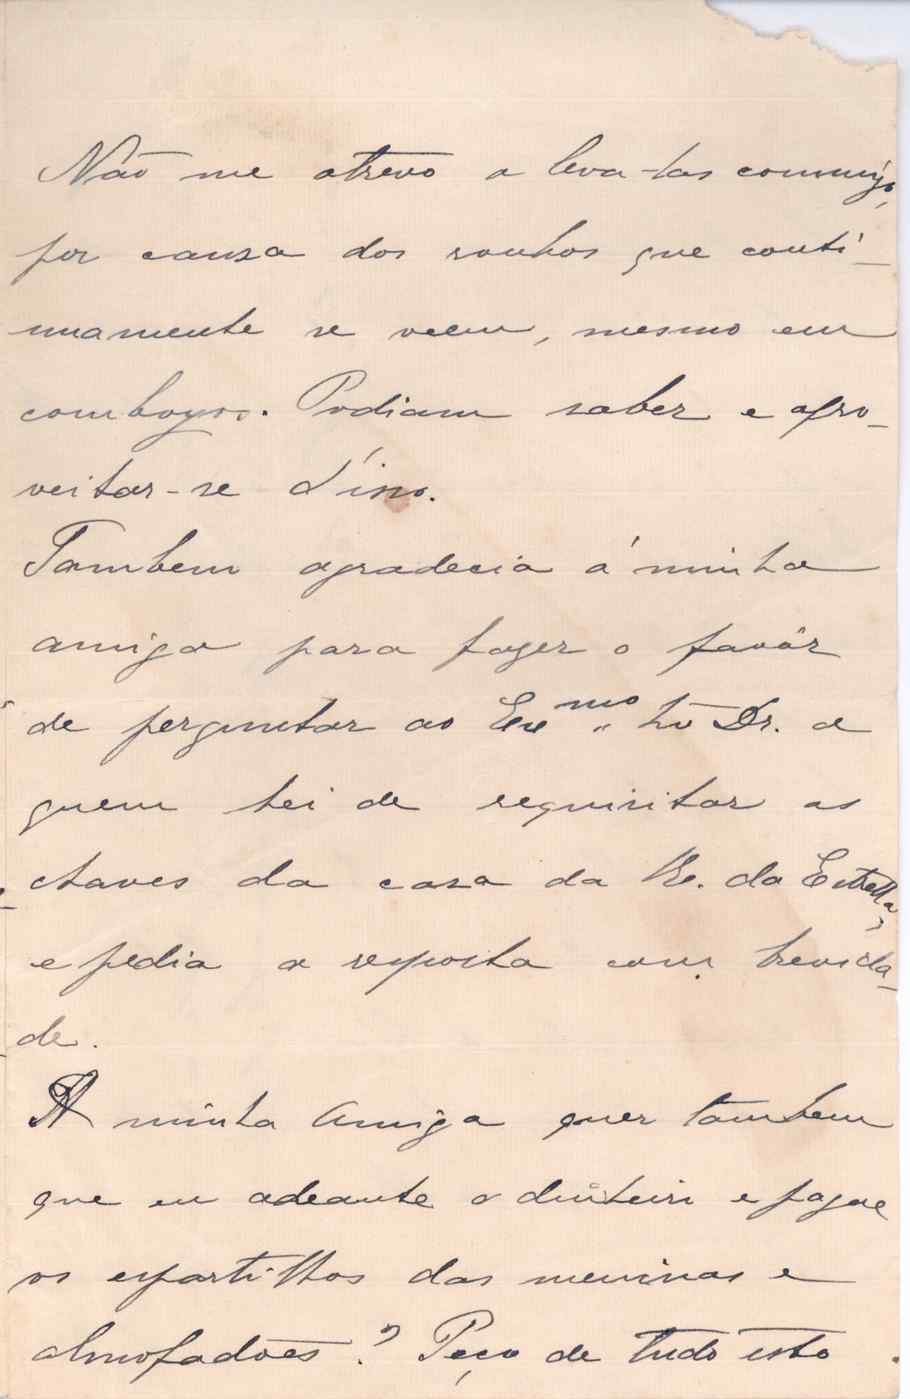 Não me atrevo a leva-las commigo,
por causa dos roubos que conti-
nuamente se veem, mesmo em
comboyos. Podiam saber e apro-
veitar-se d'isso.
Tambem agradecia á minha
amiga para fazer o favôr
de perguntar ao Exmo Dr. a
quem hei de requisitar as
chaves da casa da da Estrella,
e pedia a resposta com brevida-
de.
A minha Amiga quer tambem
que eu adeante o dinheiro e pague
os espartilhos das meninas e
almofadões? Peço de tudo isto